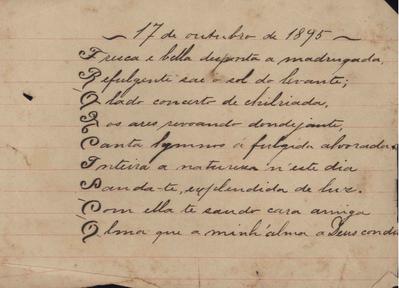 17 de outubro de 1895
Fresca e bella desponta a madrugada,
Refulgente sae o sol do levante;
Alado concerto de chilriada,
Nos ares revoando dondejante,
Canta hymnos á fulgida alvorada.
Inteira a natureza n'este dia
Sauda-te, esplendida de luz.
Com ella te saudo cara amiga
Alma que a minh'alma a Deus condu